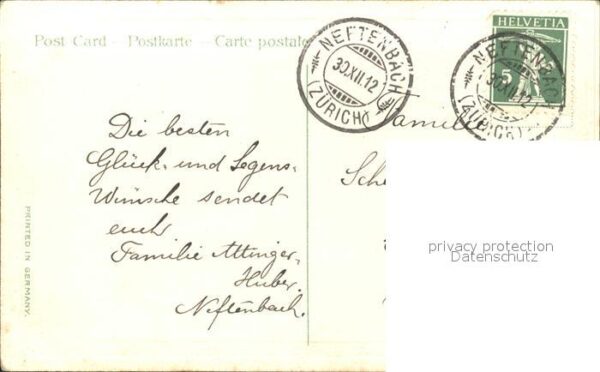 Post Card - Postkarte - Carte postale
HELVETIA
5
NEFTENBACH
30.XII.12
(ZÜRICH)
NEFTENBACH
30.XII.12
(ZÜRICH)
Die besten
Glück- und Segens-
Wünsche sendet
euch
Familie Attinger-
Huber.
Neftenbach.
Familie
privacy protection
Datenschutz
PRINTED IN GERMANY.